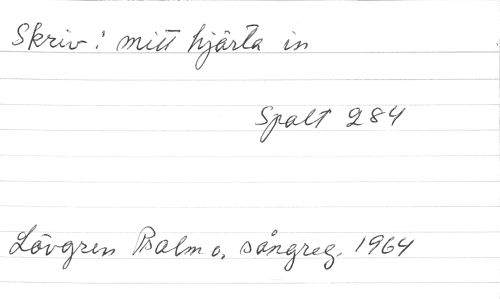 Skriv i mitt hjärta in
Spalt 284
Lövgren Psalm o. sångreg. 1964